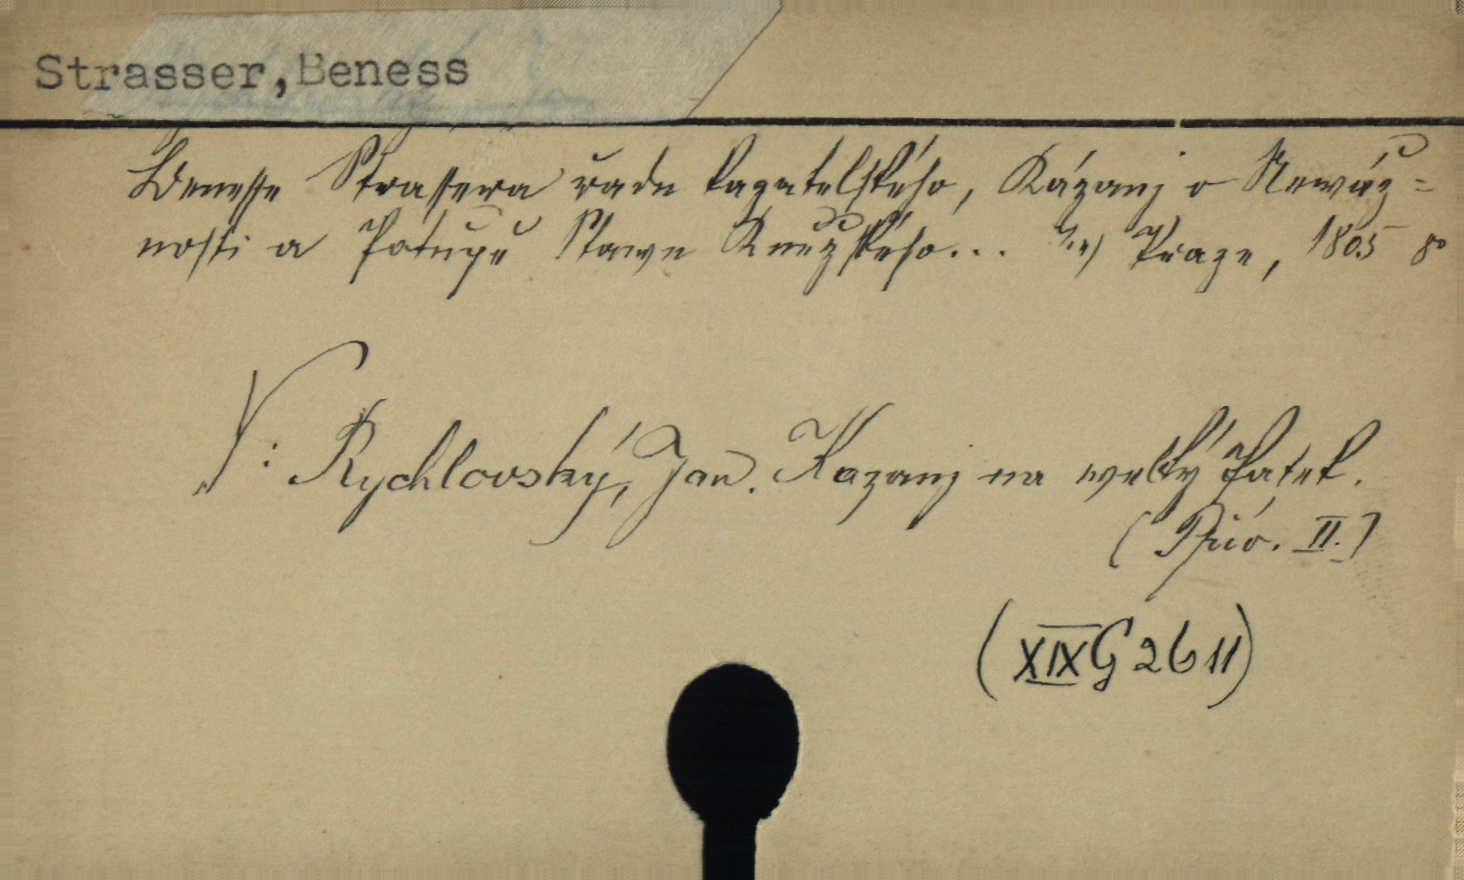 Strasser, Beness
Benesse Strassera řadu kazatelského, Kázanj o Newáž=
nosti a Potupě Stawu Kněžského... W Praze, 1805 8°
V: Rychlovský, Jan. Kazanj na welký Pátek.
(Přív. II.)
(XIX G 26 11)